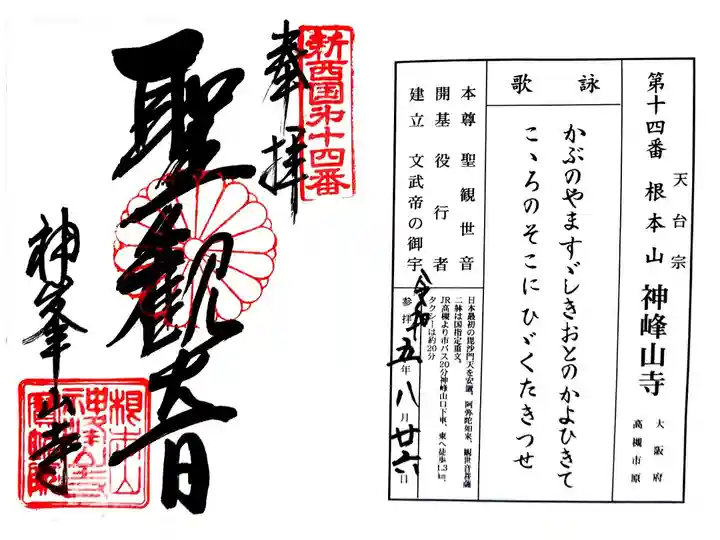 第十四番 天台宗 根本山 神峰山寺 大阪府 高槻市原
詠歌
かぶのやますゞしきおとのかよひきて
こゝろのそこにひゞくたきつせ
本尊 聖観世音
開基 役行者
建立 文武帝の御宇
日本最初の毘沙門天を安置。阿弥陀如来、観世音菩薩
二躰は国指定重文。
JR高槻より市バス20分神峰山口下車、東へ徒歩1.3㎞、
タクシーは約20分
参拝 令和五年八月廿六日
新西国第十四番
奉拝
聖観世音
神峯山寺
根本山
神峰山寺